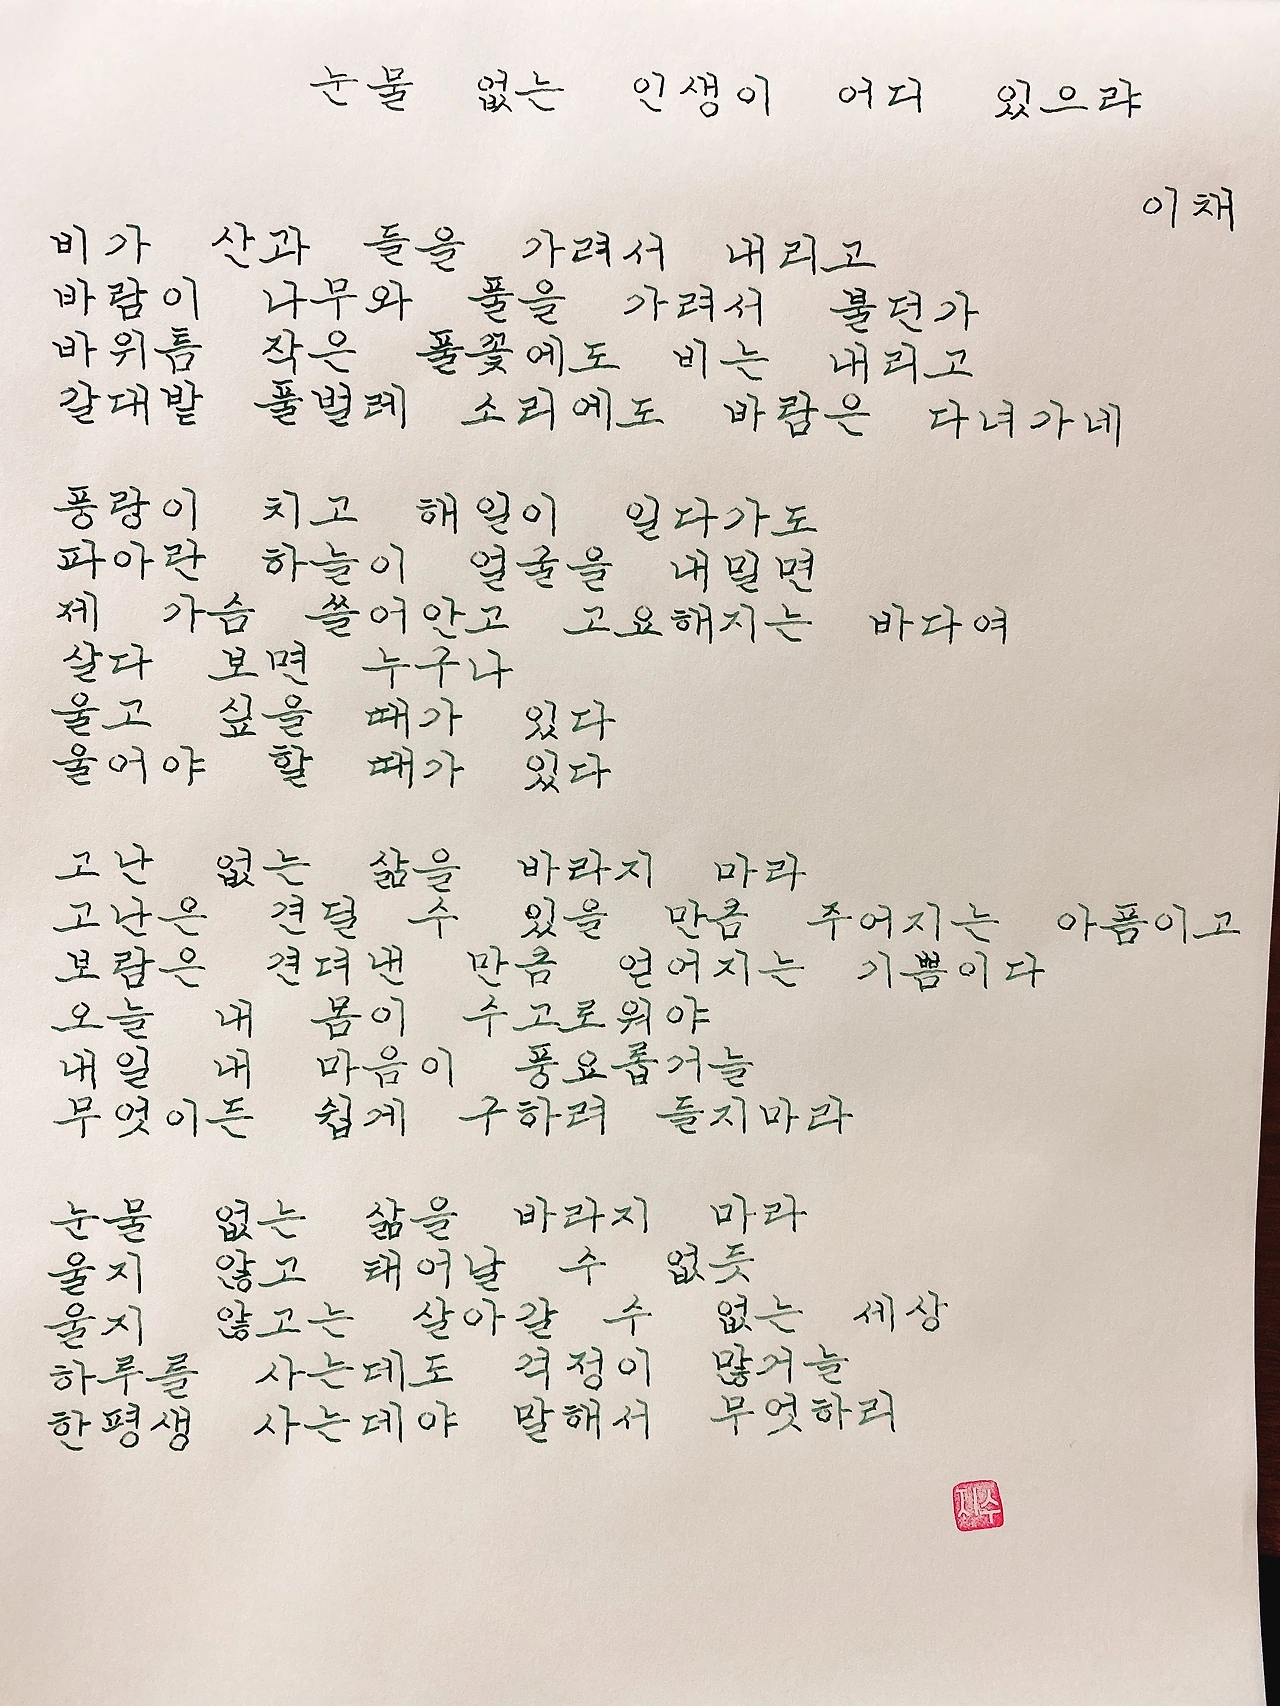 눈물 없는 인생이 어디 있으랴
이채
비가 산과 들을 가려서 내리고
바람이 나무와 풀을 가려서 불던가
바위틈 작은 풀꽃에도 비는 내리고
갈대밭 풀벌레 소리에도 바람은 다녀가네
풍랑이 치고 해일이 일다가도
파아란 하늘이 얼굴을 내밀면
제 가슴 쓸어안고 고요해지는 바다여
살다 보면 누구나
울고 싶을 때가 있다
울어야 할 때가 있다
고난 없는 삶을 바라지 마라
고난은 견딜 수 있을 만큼 주어지는 아픔이고
보람은 견뎌낸 만큼 얻어지는 기쁨이다
오늘 내 몸이 수고로워야
내일 내 마음이 풍요롭거늘
무엇이든 쉽게 구하려 들지마라
눈물 없는 삶을 바라지 마라
울지 않고 태어날 수 없듯
울지 않고는 살아갈 수 없는 세상
하루를 사는데도 걱정이 많거늘
한평생 사는데야 말해서 무엇하리